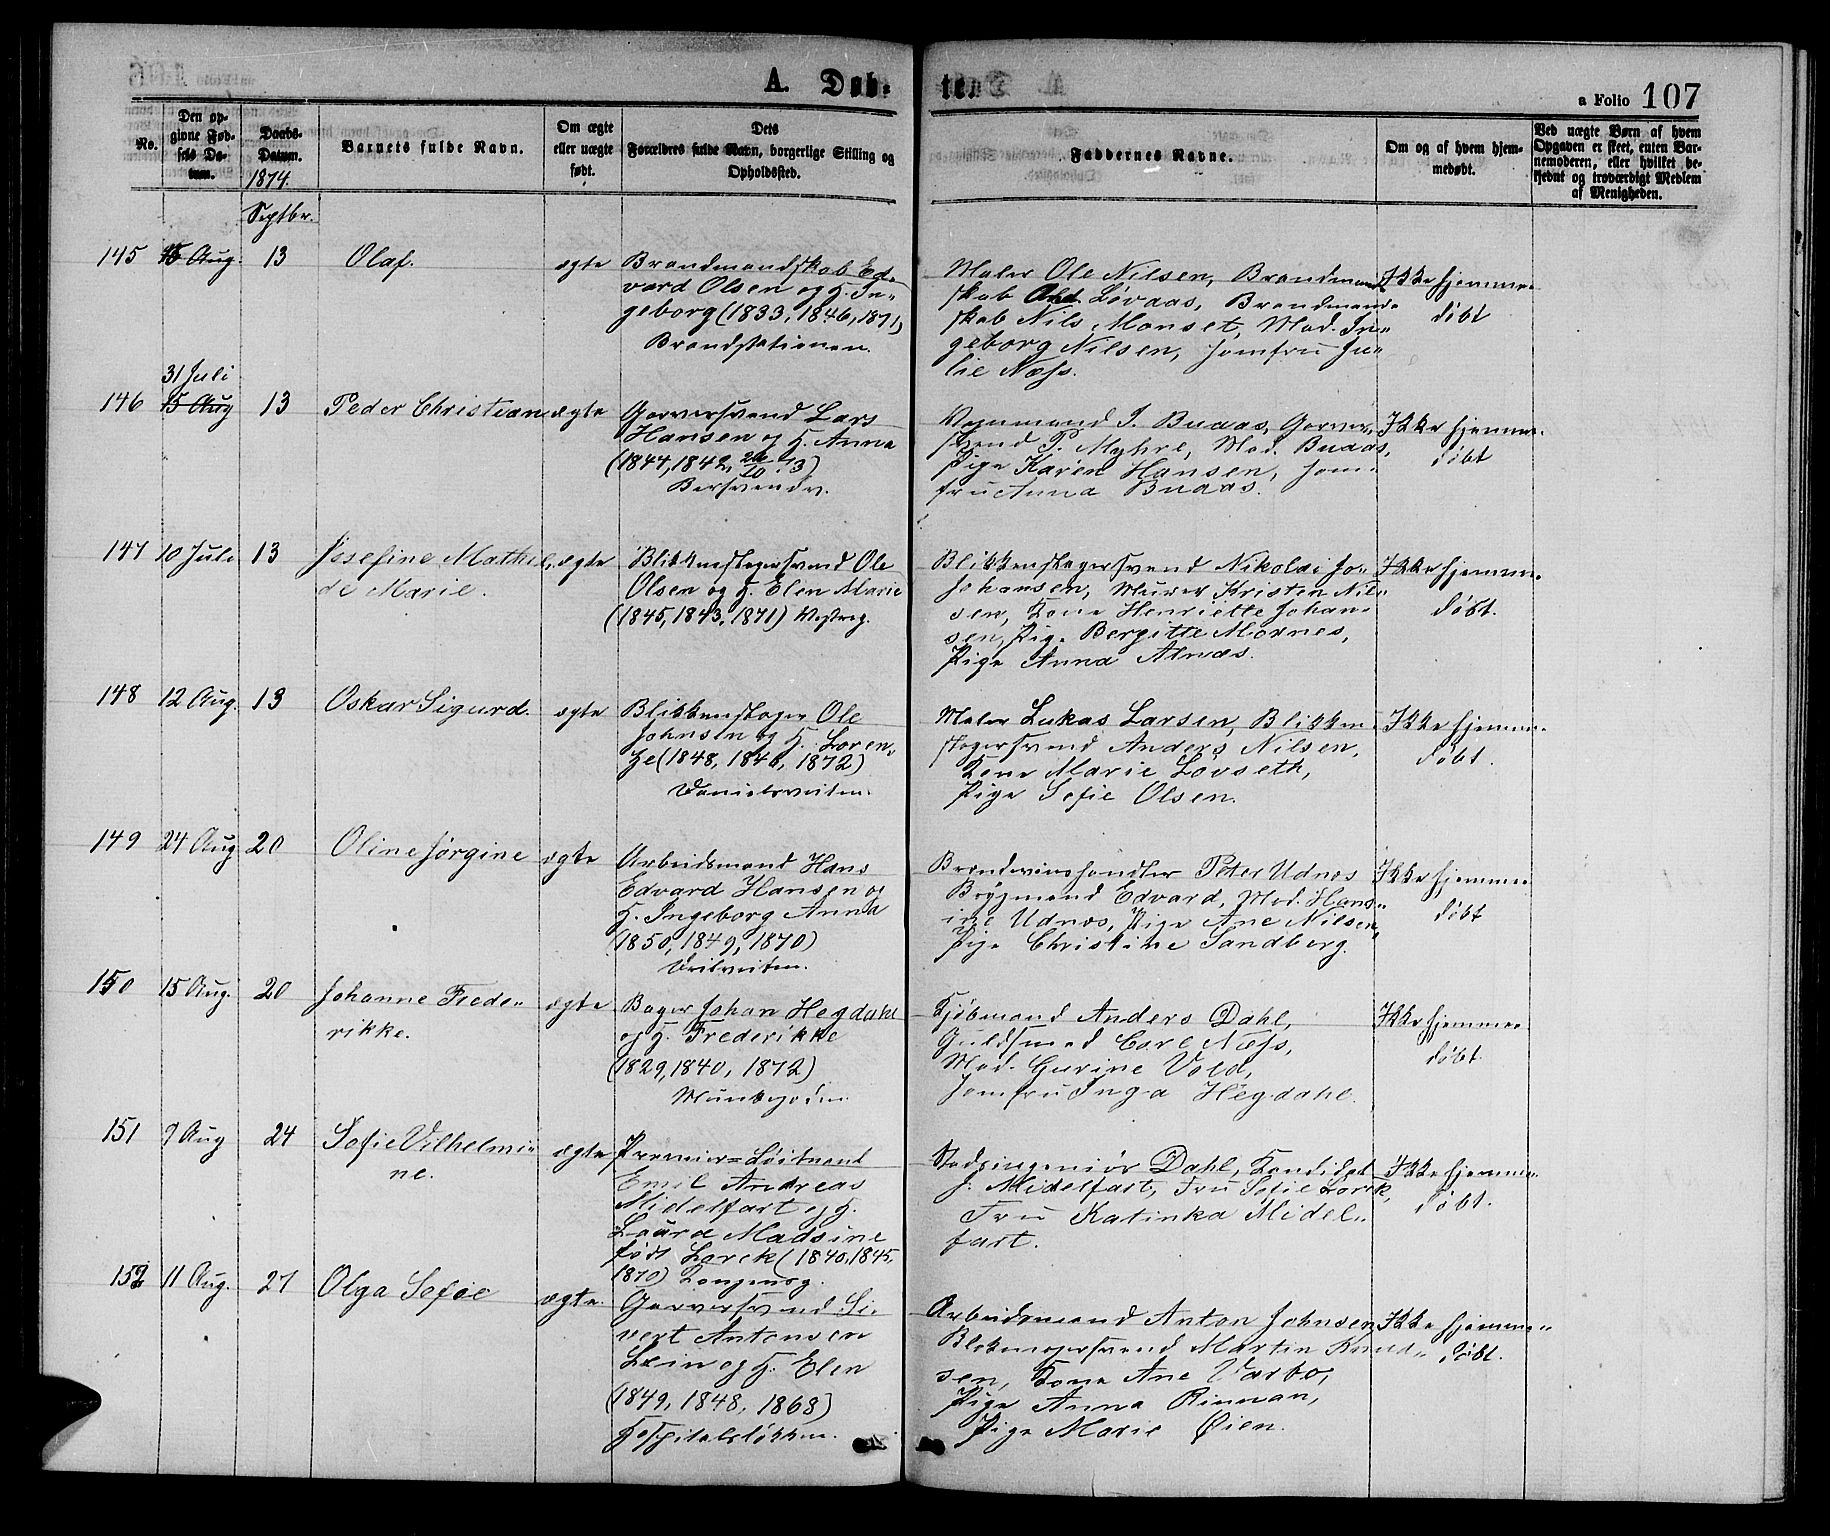 A. Døb-
te.
a Folio 107
No.
Den op-
givne Fød-
sels Da-
tum.
Daabs-
Datum.
1874.
Barnets fulde Navn.
Om ægte
eller uægte
født.
Dets
Forældres fulde Navn, borgerlige Stilling og
Opholdssted.
Faddernes Navne.
Om og af hvem hjem-
medøbt.
Ved uægte Børn af hvem
Opgaven er skeet, enten Bar-
nemoderen, eller hvilket be-
kjendt og troværdigt Medlem
af Menigheden.
Septbr.
145 Aug. 13 Olaf. ægte
Brandmandskab Ed-
vard Olsen og H. In-
geborg (1833, 1846, 1871)
Brandstationen.
Maler Ole Nilsen, Brandmand-
skab Løvaas, Brandmand-
skab Nils Monset, Mad. In-
geborg Nilsen, Jomfru Ju-
lie Næss.
Ikke hjemme-
døbt
31 Juli
146 15 Aug 13 Peder Christian ægte
Garversvend Lars
Hansen og H. Anna
(1844, 1842, 73)
Bersvendv.
Vognmand J. Buaas, Garver-
svend P. Myhre, Mad. Buaas,
Pige Karen Hansen, Jom-
fru Anna Buaas.
Ikke hjemme-
døbt
147 10 Juli 13 Josefine Mathil-
de Marie.
ægte
Blikkenslagersvend Ole
Olsen og H. Elen Marie
(1845, 1843, 1871) Vestreg.
Blikkenslagersvend Nikolai Jo-
hansen, Murer Kristen Nil-
sen, Kone Henriette Johan-
sen, Pige Bergitte Moxnes,
Pige Anna Alnæs.
Ikke hjemme-
døbt.
148 12 Aug. 13 Oskar Sigurd. ægte
Blikkenslager Ole
Johnsen og H. Loren-
ze (1848, 1872)
Danielsveiten.
Maler Lukas Larsen, Blikken-
slagersvend Anders Nilsen,
Kone Marie Løvseth,
Pige Sofie Olsen.
Ikke hjemme-
døbt.
149 24 Aug 20 Oline Jørgine ægte
Arbeidsmand Hans
Edvard Hansen og
H. Ingeborg Anna
(1850, 1849, 1870)
Brændevinshandler Peter Udnæs
Bryggmand Edvard, Mad. Hans-
ine Udnæs, Pige Ane Nilsen,
Pige Christine Sandberg.
Ikke hjemme-
døbt
150 15 Aug. 20 Johanne Frede-
rikke.
ægte
Bager Johan Hegdahl
og H. Frederikke
(1829, 1840, 1872)
Munkegaden
Kjøbmand Anders Dahl,
Guldsmed Carl Næss,
Mad. Gurine Vold,
Jomfru Inga Hegdahl.
Ikke hjemme-
døbt.
151 9 Aug 24 Sofie Vilhelmi-
ne.
ægte
Premier-Løitnant
Emil Andreas
Midelfart og H.
Laura Madsine
født Lorck (1840, 1845,
1870) Kongensg.
Stadsingeniør Dahl, Kandidat
J. Midelfart, Fru Sofie Lorck,
Fru Katinka Midel-
fart.
Ikke hjemme-
døbt.
152 11 Aug. 27 Olga Sofie ægte.
Garversvend Si-
vert Antonsen
Lein og H. Elen
(1849, 1848, 1868)
Hospitalsløkken.
Arbeidsmand Anton Johnsen,
Blokmagersvend Martin Knud-
sen, Kone Ane Varbo,
Pige Anna Rinnan,
Pige Marie Øien.
Ikke hjemme-
døbt.